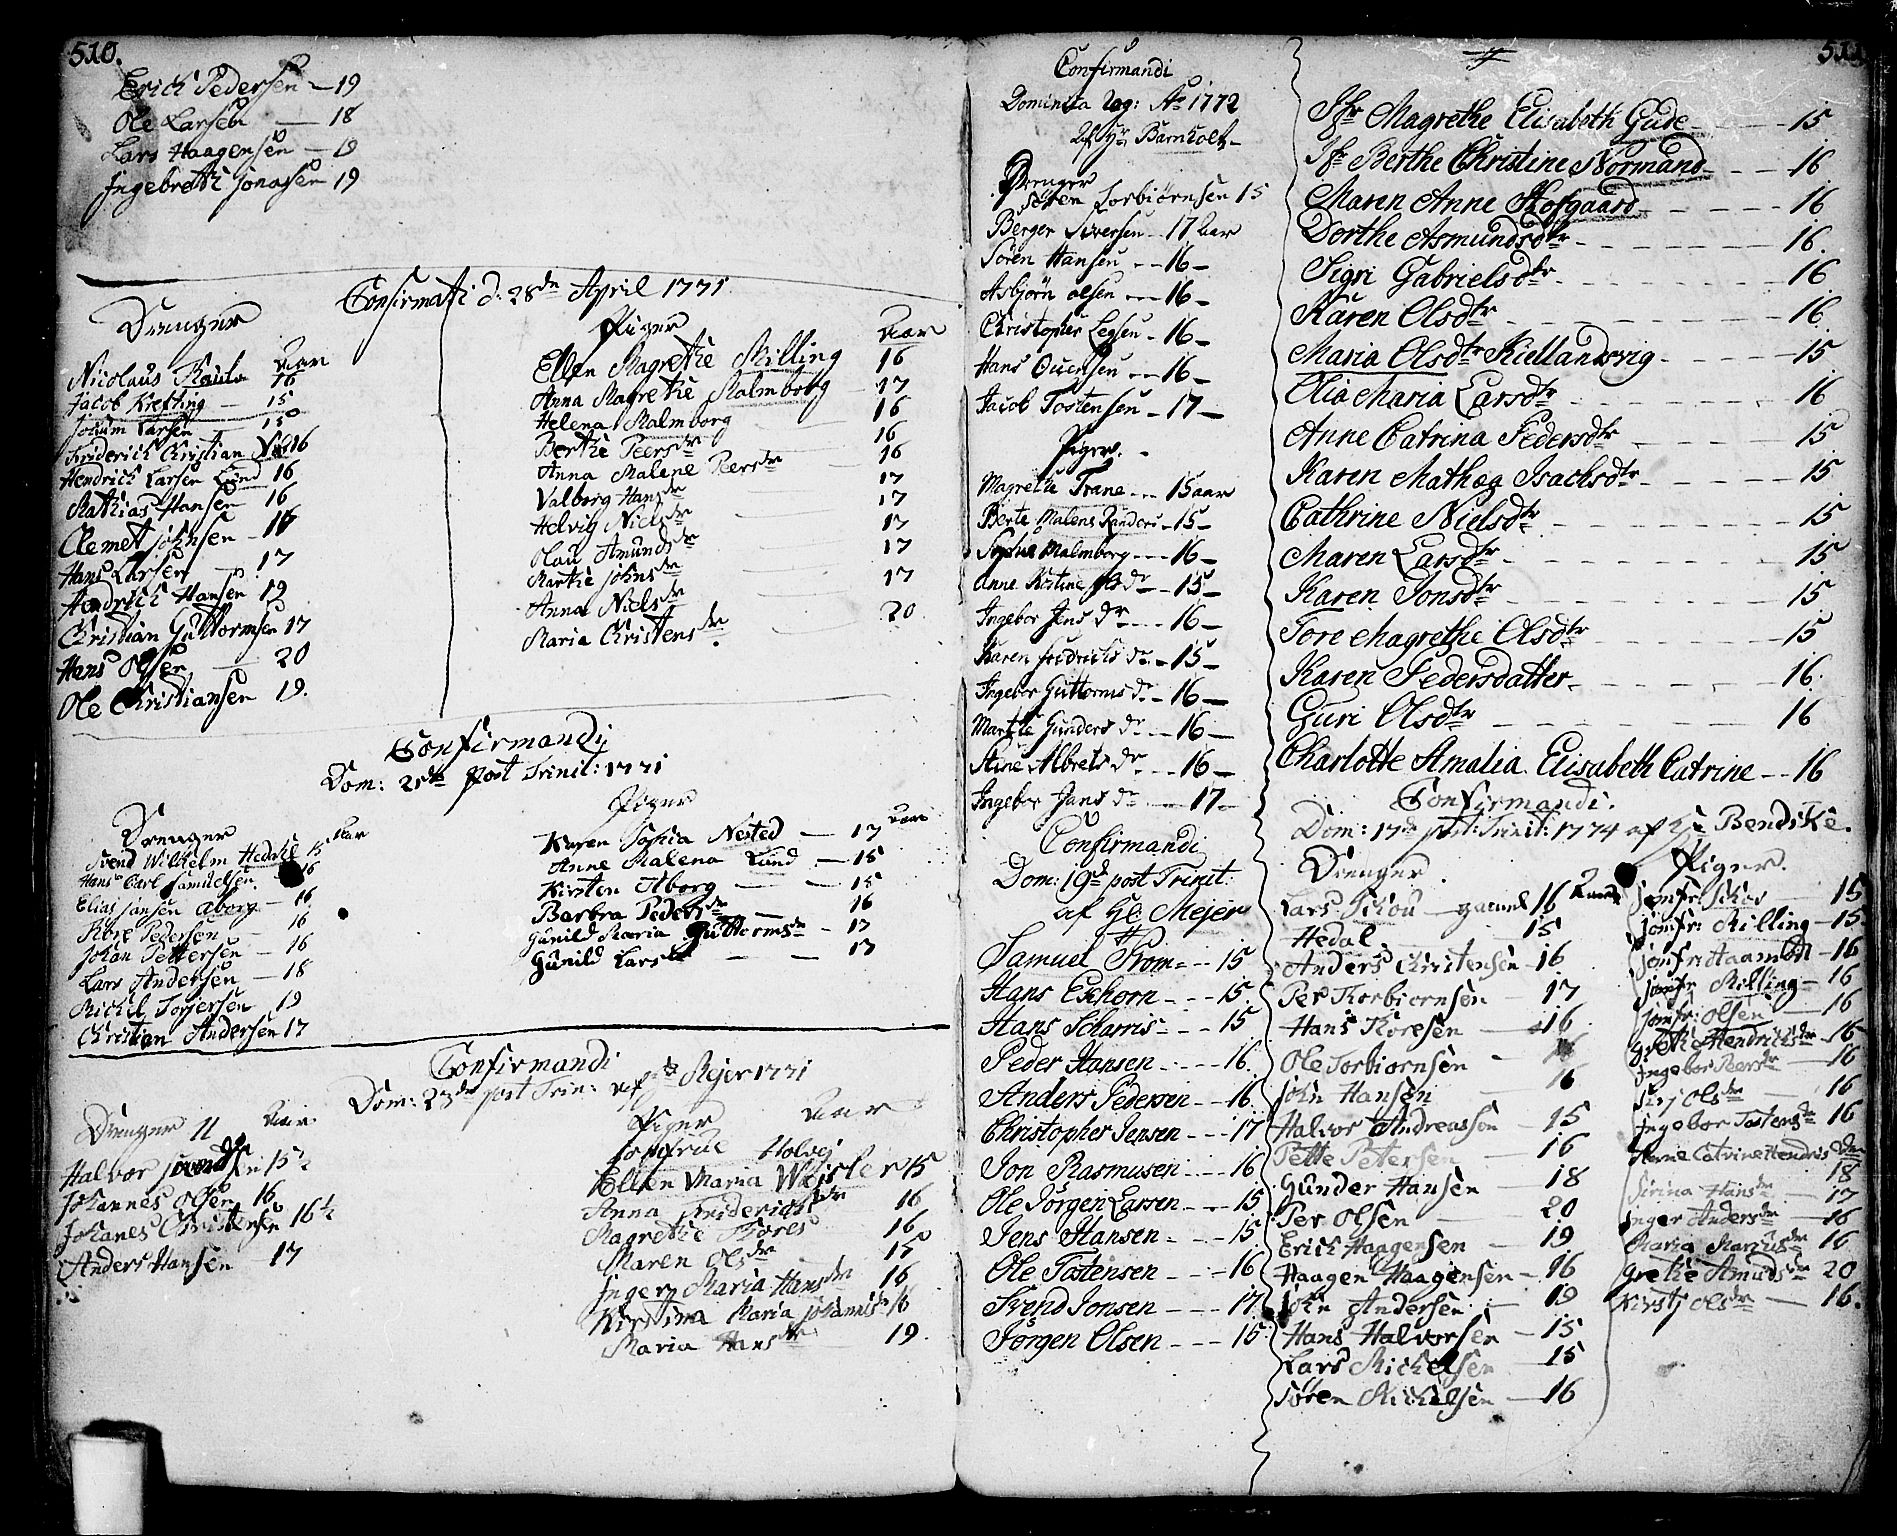 510.
Erich Pedersen — 19
Ole Larsen — 18
Lars Haagensen — 19
Ingebreth Jonasen 19
Confirmati d: 28de April 1771
Drenger
Aar
Nicolaus 16
Jacob Krefting — 15
Jokum Larsen — 15
Friderich Christian 16
Hendrich Larsen Lund 16
Mathias Hansen 16
Clemet Johnsen — 16
Hans Larsen — 17
Hendrich Hansen 19
Christian Guttormsen 17
Hans Olsen — 20
Ole Christiansen 19.
Piger
Aar
Ellen Magrethe Milling 16
Anna Magrethe Malmborg — 17
Helena Malmborg 16
Berthe Peersdr 16
Anna Malene Peersdr 16
Valborg Hansdr 17
Helvig Nielsdr 17
Olau Amundsdr 17
Marthe Johnsdr 17
Anna Nielsdr 17
Maria Christensdr. 20
Confirmandi
Dom: 21de post Trinit: 1771
Drenger
Aar
Svend Wilhelm Hedahl 15
Hans Carl Samuelsen. 16
Elias Jansen Aborg — 16
Tore Pedersen — 16
Johan Pettersen — 16
Lars Andersen — 18
Michel Torgersen 19
Christian Andersen 17
Piger
Aar
Karen Sophia Nested — 17
Anne Malena Lund — 15
Kirsten Aborg — — 15
Barbra Pedersdr — 16
Gunild Maria Guttormsdr — 17
Gunild Larsdr — — 17
Confirmandi
Dom: 23de post Trin: af Mejer 1771
Drenger 11
Aar
Halvor Svendsen 15½
Johannes Olsen 16
Johanes Christensen 16½
Anders Hansen — 17
Piger
Aar
Jomfrue Holsej
Ellen Maria Weisler 15
Anna Friderichsdr 16
Magrethe Tores 16
Maren Olsdr 15
Inger Maria Hansdr 16
Kirstina Maria Johannisdr 16
Maria Hansdr 19.
Confirmandi
Dominica Ao 1772
af Hr Barnholt
Drenger
Søren Torbiørnsen 15
Berger Siversen — 17 Aar
Sören Hansen — 16 —
Asbjørn Olsen — 16 —
Christopher Legsen — 16 —
Hans Ouensen — 16 —
Jacob Tostensen — 17 —
Piger.
Magrethe Trane — 15 aar
Berte Malene Randers — 15 —
Sophia Malmborg — 16 —
Anne Kirstine dr — 15 —
Ingebor Jens dr — 16 —
Karen Fridrichs dr — 15 —
Ingebor Guttorms dr — 16 —
Marthe Gunders dr — 16 —
Stine Albrets dr — 16 —
Ingebor Jans dr — 17 —
Confirmandi
Dom: 19de post Trinit:
af Hr Mejer
Samuel From — 15
Hans Exhorn — 15.
Hans Scharris — 15.
Peder Hansen — 16.
Anders Pedersen — 16.
Christopher Jensen — 17
Jon Rasmusen — 16
Ole Jörgen Larsen — 15
Jens Hansen — 15
Ole Tostensen — 16
Svend Jonsen — 17
Jörgen Olsen — 15
511
Jfr Magrethe Elisabeth Gude — 15
Jfr Berthe Christine Normand — 16
Maren Anne Hofgaard — 16
Dorthe Asmundsdtr — 16.
Sigri Gabrielsdtr — 16
Karen Olsdtr — 16
Maria Olsdtr Kiellandsvig — 15
Olia Maria Larsdtr — 16
Anne Catrina Pedersdtr — 15
Karen Mathea Isachsdtr — 15
Cathrine Nielsdtr — 15
Maren Larsdtr — 15
Karen Jonsdtr — 15
Tore Magrethe Olsdtr — 15
Karen Pedersdatter — 16.
Guri Olsdtr — 16
Charlotte Amalia Elisabeth Catrine — 16
Confirmandi.
Dom: 17de post: Trinit: 1774 af Hr Bendike.
Drenger.
Lars Schou — gammel 16 Aar
Hedal — 15
Anders Christensen — 16
Per Torbiornsen — 17
Hans Toresen — 16
Ole Torbiornsen — 16
John Hansen — 16
Halvor Andreassen — 15
Pette Petersen — 16
Gunder Hansen 18
Per Olsen — 20
Erich Haagensen — 19
Haagen Haagensen — 16
John Andersen — 19
Hans Halvorsen — 15
Lars Michelsen — 15
Søren Michelsen — 16
Piger.
Jomfr: Schou — 15
Jomfr: Milling — 15
Jomfr: Haamon — 16
Jomfr Milling — 16
Jomfr: Olsen — 16
Grethe Hendrichsdr — 16
Ingebor Peersdr — 16
Sirj Olsdr — 16
Ingebor Tostensdr — 16
Anne Catrine Hendrisdr
18
Sirina Hansdr — 17
Inger Andersdr — 16
Maria Mariusdr 16
Grethe Amundsdr 20
Kirstj Olsdr — 16.